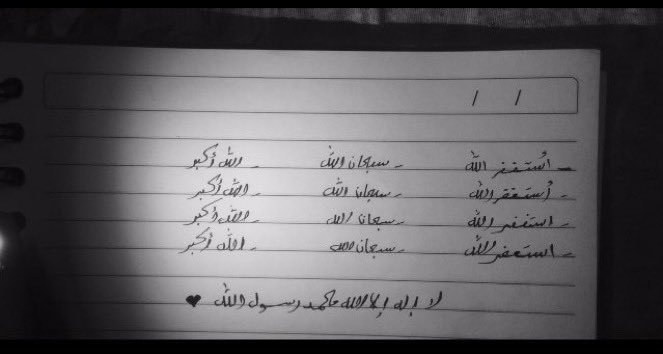 / /
- أستغفر الله - سبحان الله - الله أكبر
- أستغفر الله - سبحان الله - الله أكبر
- استغفر الله - سبحان الله - الله أكبر
- استغفر الله - سبحان الله - الله أكبر
لا إله إلا الله محمد رسول الله ♥